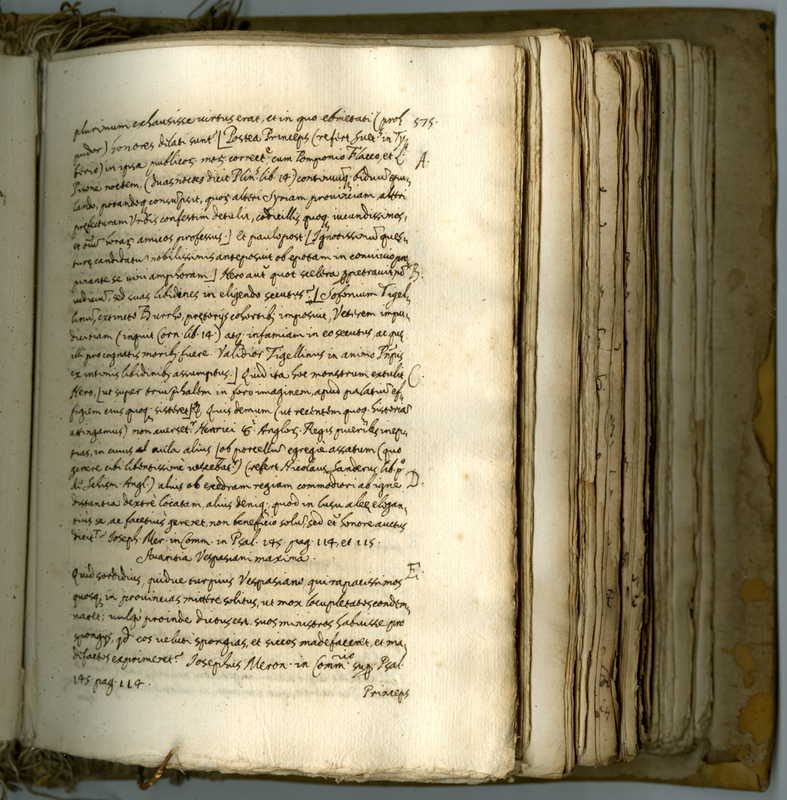 plurimum exhausisse virtus erat, et in quo ebrietati (proh 575.
pudor) honores dilati sunt? [Postea Princeps (refert Suet: in Ty
berio) in ipsa publicor. mor. correct.e cum Pomponio Flacco, et L. A.
Pisone noctem, (duas noctes dicit Plin: lib. 14) continuũq; biduũ epu-
lando, potandoq; consũpsit, quor. alteri Syriam provinciam, alteri
prefecturam Urbis confestim detulit, codicillis quoq; iucundissimos,
et omniũ horar. amicos professus.] Et paulo post [Ignotissimũ ques-
ture candidatũ nobilissimis anteposuit ob epotam in convivio pro-
pinante se vini amphoram.] Nero aut quot scelera ppetravit nõ B.
iudiciũ, sed suas libidines in eligendo secutus? [Sofonium Tigel-
linũ, extincto Burrho, pretorijs cohortib; imposuit, Veterem impu-
dicitiam (inquit Corn. lib. 14.) atq; infamiam in eo secutus, ac que
illi pro cognatis morib; fuere. Validior Tigellinus in animo Prñpis
ex intimis libidinib; assumptus.] Quid ita hoc monstrum extulit C.
Nero, [ut super triumphalem in foro imaginem, apud palatiũ ef-
figiem eius quoq; sisteret? Quis demum (ut recentem quoq; historiã
attingamus) non averset.r Henrici 8.i Anglor. Regis pueriles inep-
tias, in cuius aula alius [ob porcellũ egregie assatum (quo
genere cibi libentissime vescebat.r) (refert Nicolaus Sanderus lib. p.o
de Schism. Angl.) alius ob exedram regiam commodiori ab igne D.
distantia dextre locatam, alius deniq; quod in lusu alee elegan-
tius se, ac facetius gereret, non beneficio solũ, sed et honore auctus
dicit.r Joseph Mer. in Comm. in Psal. 145. pag. 114. et 115.
Avaritia Vespasiani maxima.
Quid sordidius, quidve turpius Vespasiano, qui rapacissimos E.
quosq; in provincias mittere solitus, ut mox locupletatos condem-
naret; vulgo proinde dictus est, suos ministros habuisse pro
spongijs, qd eos veluti spongias, et siccos madefaceret, et ma-
defactos exprimeret? Josephus Meron. in Comm. sup Psal.
145. pag. 114.
Princeps